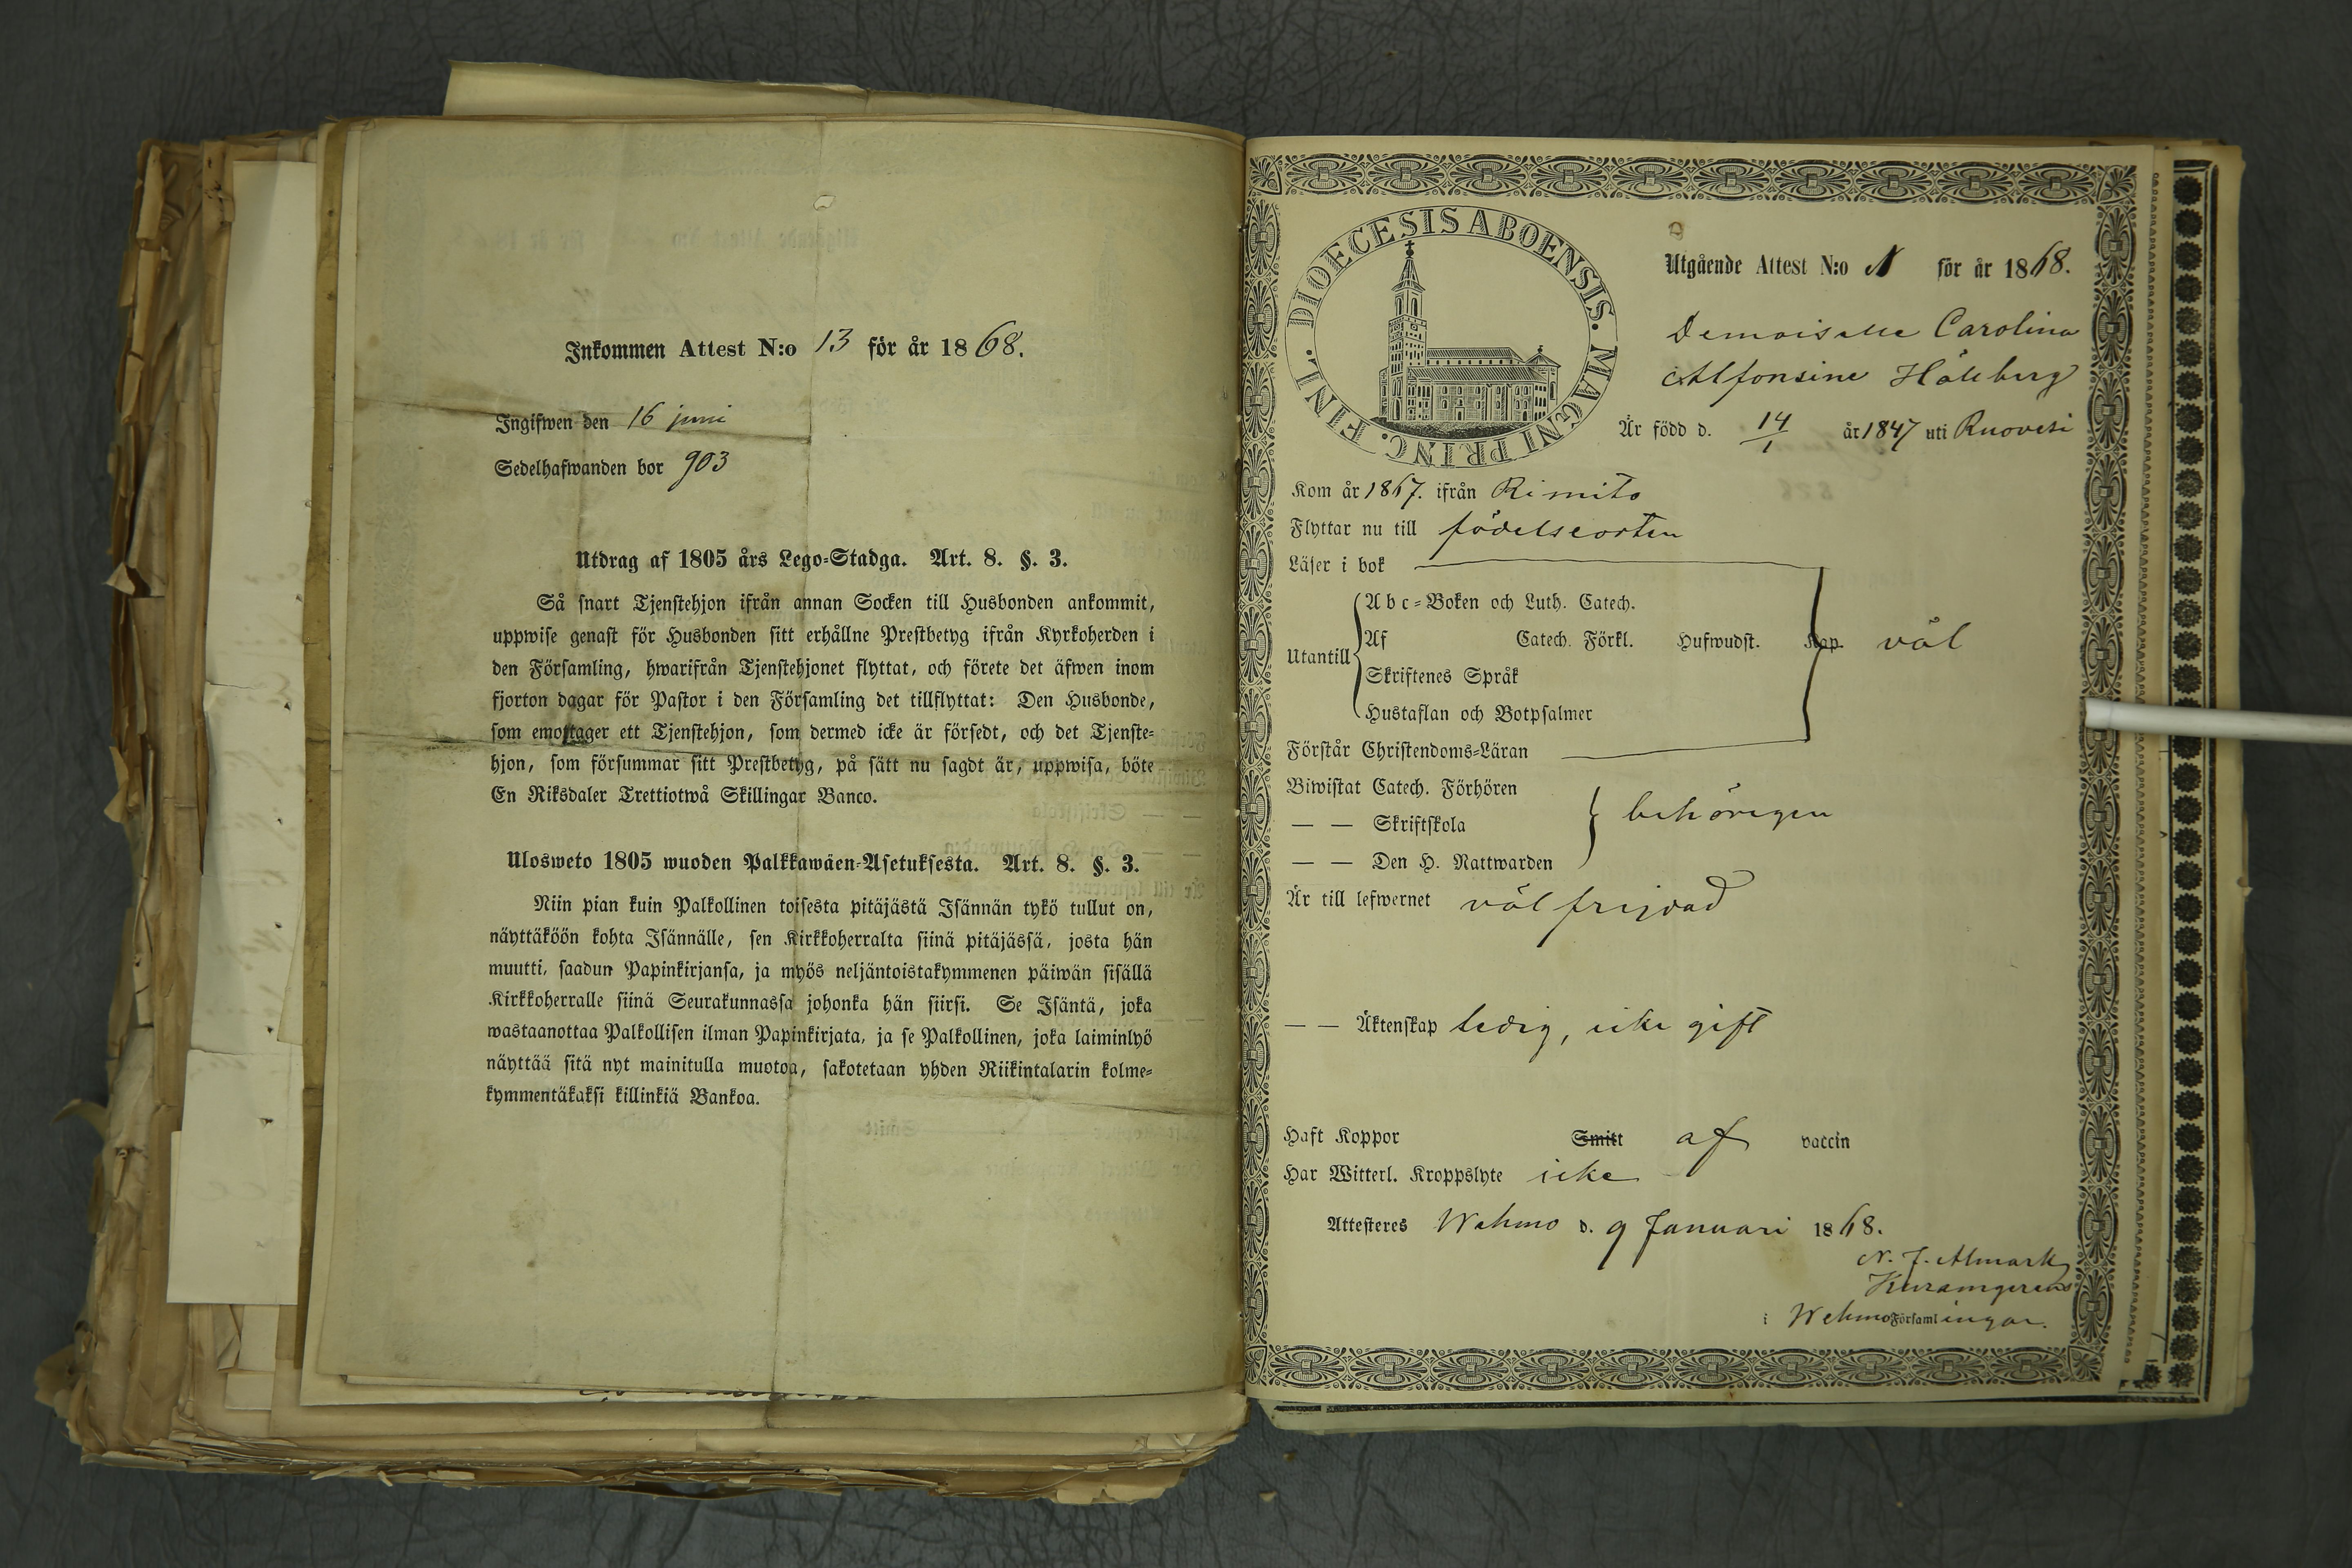 Inkommen Attest N:o 13 för år 1868.
Ingifwen den 16 juni
Sedelhafwanden bor 903
Utdrag af 1805 års Lego-Stadga. Art. 8. §. 3.
Så snart Tjenstehjon ifrån annan Socken till Husbonden ankommit,
uppwise genast för Husbonden sitt erhållne Prestbetyg ifrån Kyrkoherden i
den Församling, hwarifrån Tjenstehjonet flyttat, och förete det äfwen inom
fjorton dagar för Pastor i den Församling det tillflyttat: Den Husbonde,
som emottager ett Tjenstehjon, som dermed icke är försedt, och det Tjenste-
hjon, som försummar sitt Prestbetyg, på sätt nu sagdt är, uppwisa, böte
En Riksdaler Trettiotwå Skillingar Banco.
Ulosweto 1805 wuoden Palkkawäen-Asetuksesta. Art. 8. §. 3.
Niin pian kuin Palkollinen toisesta pitäjästä Isännän tykö tullut on,
näyttäköön kohta Isännälle, sen Kirkkoherralta siinä pitäjässä, josta hän
muutti, saadun Papinkirjansa, ja myös neljäntoistakymmenen päiwän sisällä
Kirkkoherralle siinä Seurakunnassa johonka hän siirsi. Se Isäntä, joka
wastaanottaa Palkollisen ilman Papinkirjata, ja se Palkollinen, joka laiminlyö
näyttää sitä nyt mainitulla muotoa, sakotetaan yhden Riikintalarin kolme-
kymmentäkaksi killinkiä Bankoa.
DIOECESIS ABOENSIS. MAGNI PRINC. FINL.
Utgående Attest N:o för år 1868.
Demoiselle Carolina
Alfonsine
Är född d. 14/1 år 1847 uti Ruovesi
Kom år 1867. ifrån Rimito
Flyttar nu till födelseorten
Läser i bok
Utantill
Abc-Boken och Luth. Catech.
Af Catech. Förkl. Hufwudst. Kap. väl
Skriftenes Språk
Hustaflan och Botpsalmer
Förstår Christendoms-Läran
Biwistat Catech. Förhören
— — Skriftskola behörigen
— — Den H. Nattwarden
Är till lefwernet väl frejdad
— — Äktenskap ledig, icke gift
Haft Koppor Smitt af vaccin
Har Witterl. Kroppslyte icke
Attesteres Wehmo d. 9 Januari 1868.
N. J. Almark
i Wehmo Församlingar.